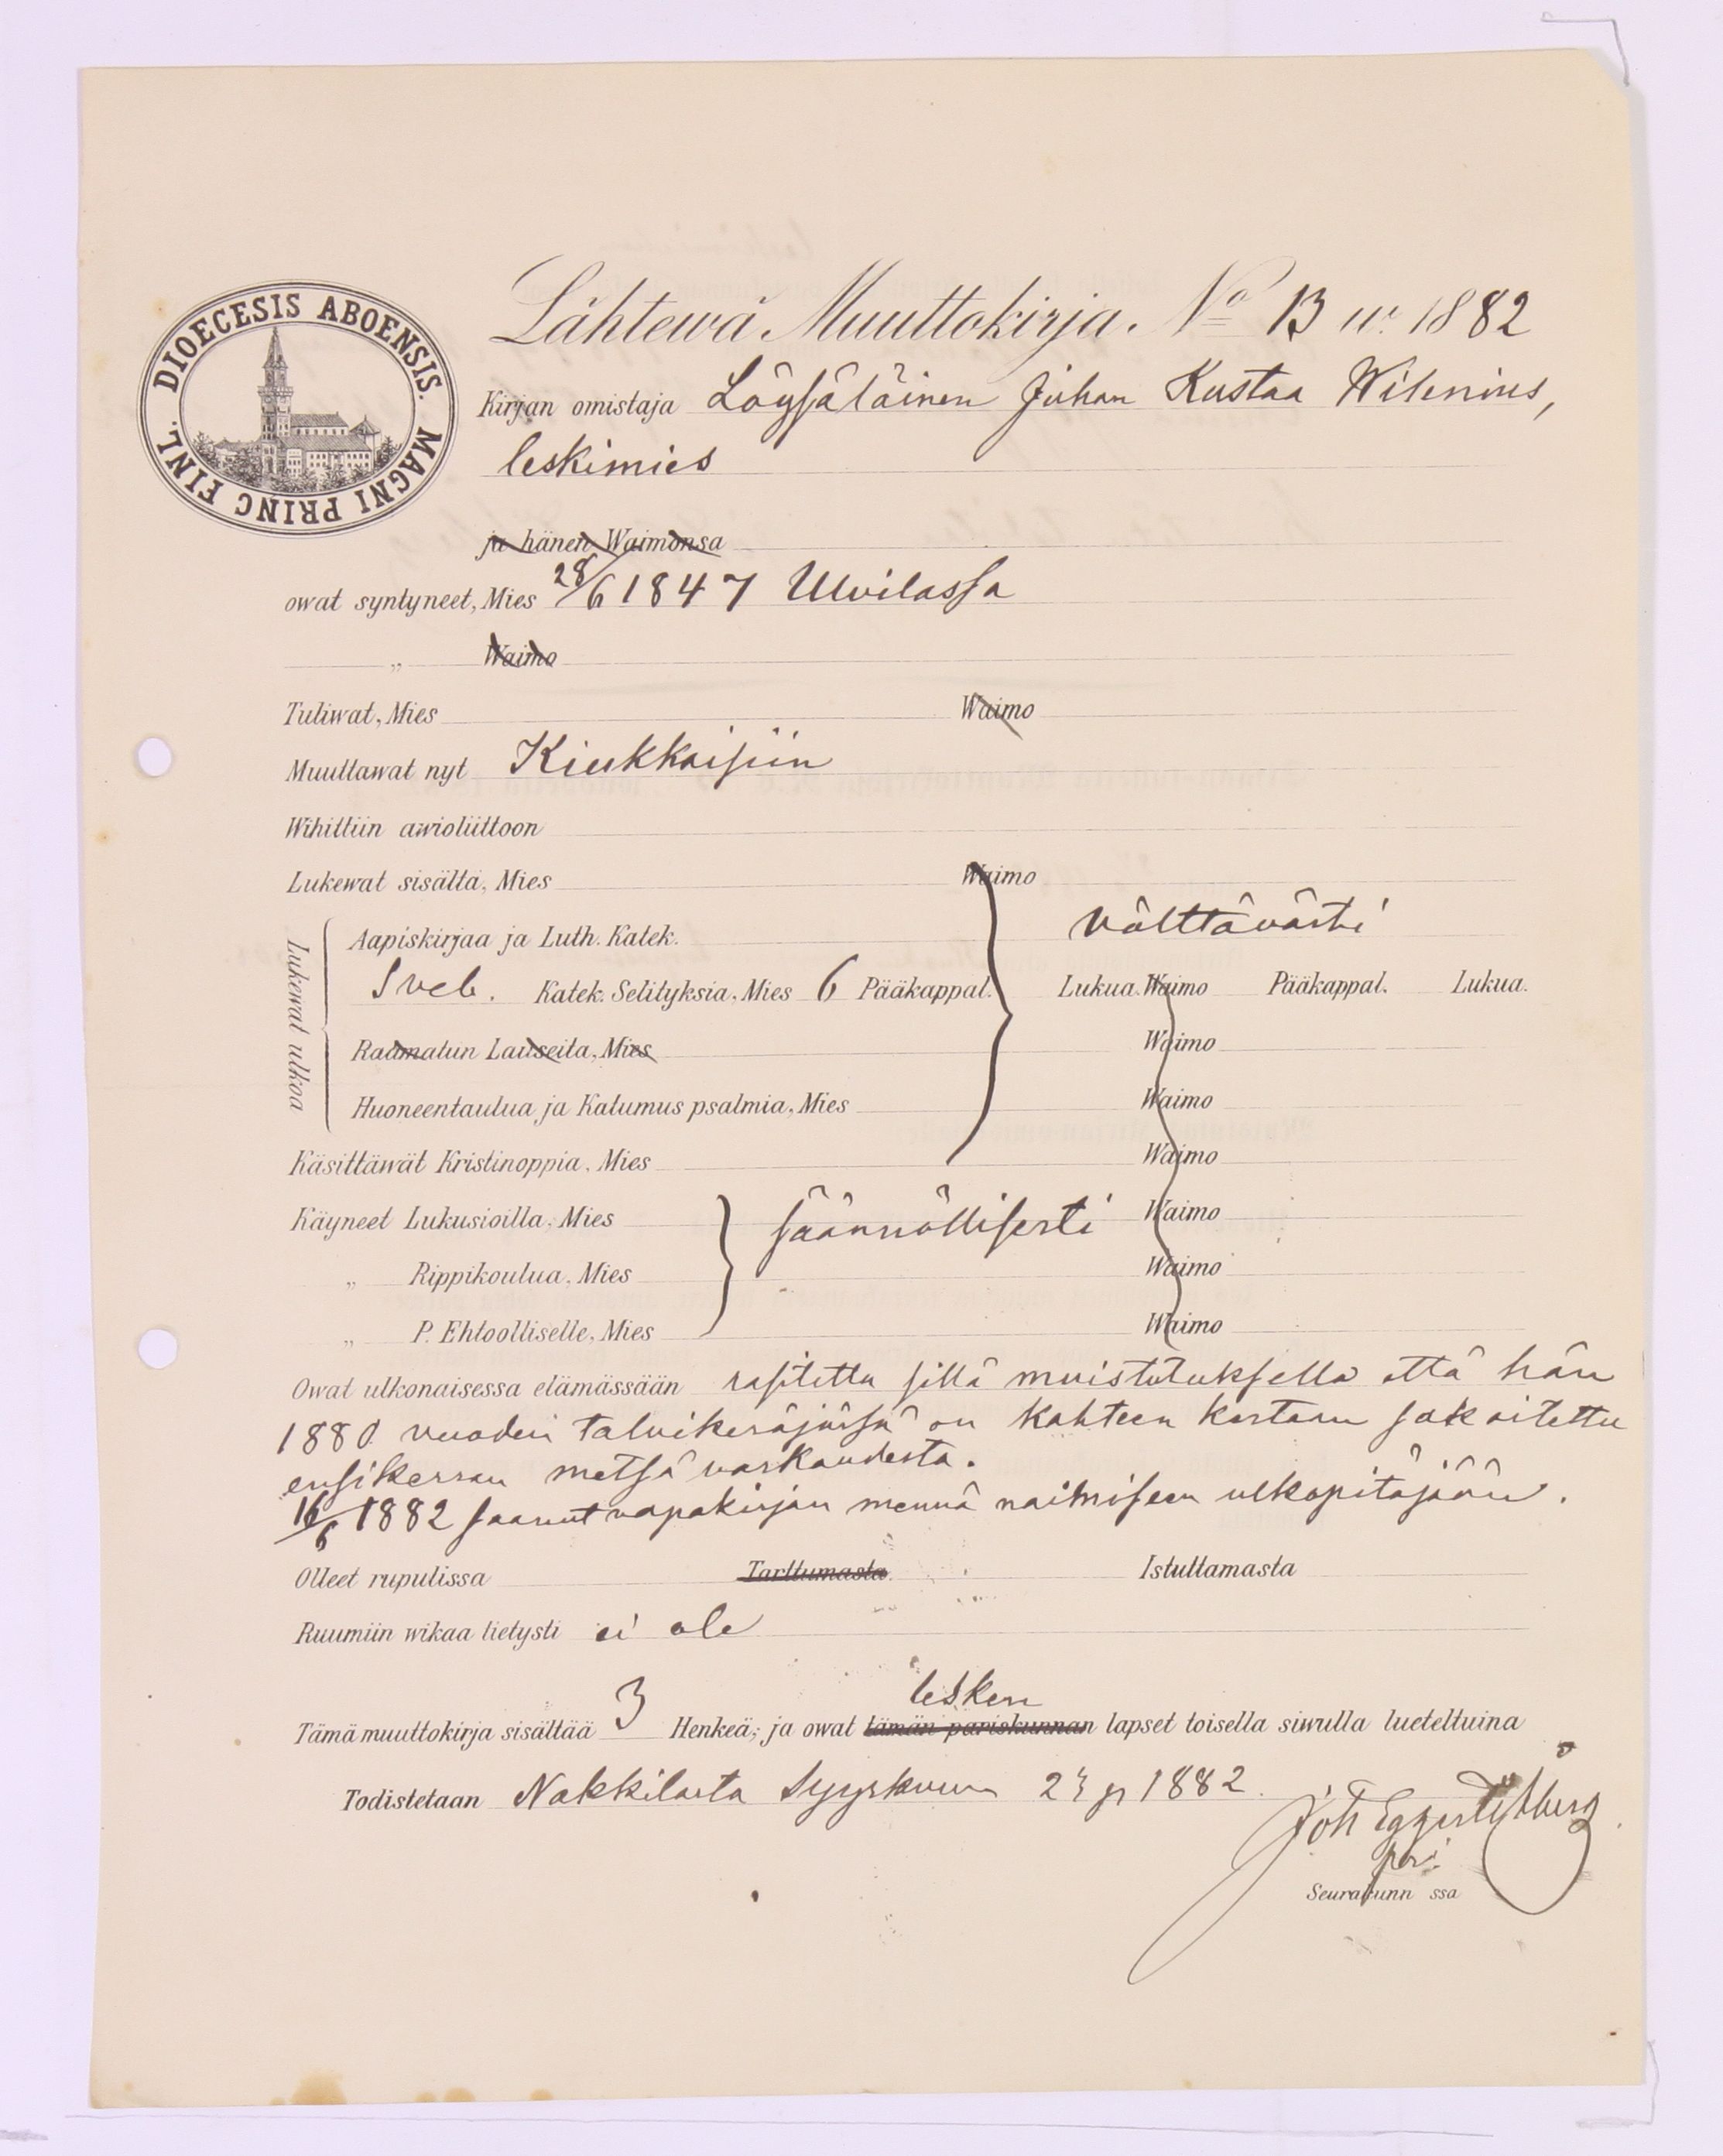 DIOECESIS ABOENSIS. MAGNI PRINC FINL.
Lähtewä Muuttokirja. No 13 w. 1882
Kirjan omistaja Löysäläinen Juhan Kustaa Wilenius,
leskimies
ja hänen Waimonsa
owat syntyneet, Mies 28/6 1847 Ulvilassa
„ Waimo
Tuliwat, Mies Waimo
Muuttawat nyt Kiukkaisiin
Wihittiin awioliittoon
Lukewat sisältä, Mies Waimo
Lukewat ulkoa
Aapiskirjaa ja Luth. Katek. välttävästi
Sveb. Katek. Selityksia, Mies 6 Pääkappal. Lukua. Waimo Pääkappal. Lukua.
Raamatun Lauseita, Mies Waimo
Huoneentaulua ja Katumus psalmia, Mies Waimo
Käsittäwät Kristinoppia, Mies Waimo
Käyneet Lukusioilla, Mies säännöllisesti Waimo
„ Rippikoulua, Mies Waimo
„ P. Ehtoolliselle, Mies Waimo
Owat ulkonaisessa elämässään rasitettu sillä muistutuksella että hän
1880 vuoden talvikeräjässä on kahteen kertaan sakoitettu
ensikerran metsävarkaudesta.
16/6 1882 saanut vapakirjan mennä naimiseen ulkopitäjään.
Olleet rupulissa Tarttumasta Istuttamasta
Ruumiin wikaa tietysti ei ole
lesken
Tämä muuttokirja sisältää 3 Henkeä; ja owat tämän pariskunnan lapset toisella siwulla lueteltuina
Todistetaan Nakkilasta Syyskuun 23 p 1882.
Seurakunn ssa